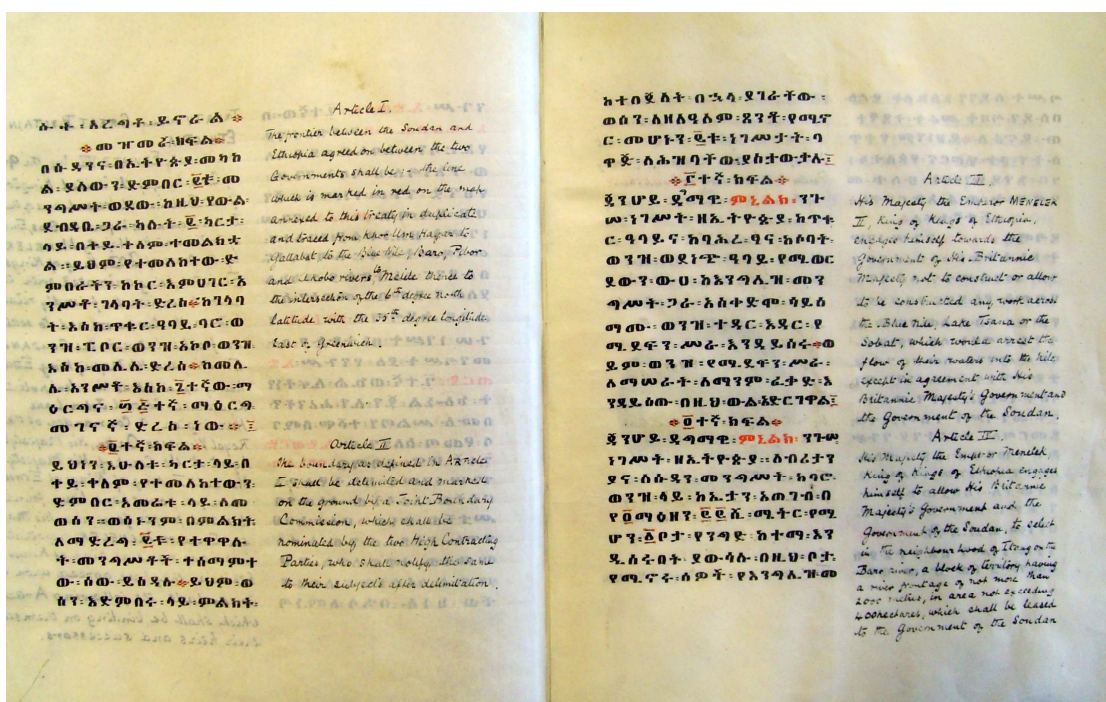 ሱ፡ተ፡እረግቶ፡ይኖራል፨
፨መዝመሪ፡ክፍል፨
በሱዳንና፡በኢትዮጵያ፡መካከ
ል፡ያለው፡ድምበር፡፪ቱ፡መ
ንግሥት፡ወደው፡ከዚህ፡የውል፡
ደብዳቤ፡ጋራ፡ካሉት፡፪፡ካርታ፡
ላይ፡በቀይ፡ቀለም፡ተመልክቷ
ል።ይህም፡የተመለከተው፡ድ
ምበራችን፡ከኮር፡እምሀገር፡አ
ንሥቶ፡ገላባት፡ድረስ፨ከገላባ
ት፡እስከ፡ጥቁር፡ዓባይ፡ባሮ፡ወ
ንዝ፡ፒቦር፡ወንዝ፡አኮቦ፡ወንዝ፡
እስከ፡መሊሌ፡ድረስ፨ከመሊ
ሌ፡አንሥቶ፡እስከ፡፮ተኛው፡ማ
ዕርግና፡፴፭ተኛ፡ማዕርግ፡
መገናኛ፡ድረስ፡ነው፨
፨፪ተኛ፡ክፍል፨
ይህንን፡እሁለቱ፡ካርታ፡ላይ፡በ
ቀይ፡ቀለም፡የተመለከተውን፡
ድምበር፡እመሬቱ፡ላይ፡ለመ
ወሰን።ወሰኑንም፡በምልክት፡
ለማድረግ፡፪ቱ፡የተዋዋሉ
ት፡መንግሥቶች፡ተስማምተ
ው፡ሰው፡ይሰዳሉ፨ይህም፡ወ
ሰን፡እድምበሩ፡ላይ፡ምልክት፡
Article I.
The frontier between the Soudan and
Ethiopia agreed on between the two
Governments shall be:- the line
which is marked in red on the map
annexed to this treaty in duplicate
and traced from Khor Um Hagar to
Gallabat to the Blue Nile, Baro, Pibor
and Akobo rivers to Melile thence to
the intersection of the 6th degree north
latitude with the 35th degree longitude
East of Greenwich.
Article II
The boundary as defined in Article
I shall be delimited and marked
on the ground by a Joint Boundary
Commission, which shall be
nominated by the two High Contracting
Parties, who shall notify the same
to their subjects after delimitation.
ከተበጀለት፡በኋላ፡ያገራቸው፡
ወሰን፡ለዘለዓለም፡ጸንቶ፡የሚኖ
ር፡መሆኑን፡፪ቱ፡ነገሥታት፡ባ
ዋጅ፡ለሕዝባቸው፡ያስታውቃሉ፨
፨፫ተኛ፡ክፍል፨
ጃንሆይ፡ዳግማዊ፡ምኒልክ፡ንጉ
ሠ፡ነገሥት፡ዘኢትዮጵያ፡ከጥቁ
ር፡ዓባይና፡ከባሕረ፡ፃና፡ከሶባት፡
ወንዝ፡ወደነጭ፡ዓባይ፡የሚወር
ደውን፡ውሀ፡ከእንግሊዝ፡መን
ግሥት፡ጋራ፡አስቀድሞ፡ሳይስ
ማሙ፡ወንዝ፡ተዳር፡እዳር፡የ
ሚደፍን፡ሥራ፡እንዳይሰሩ፨ወ
ይም፡ወንዝ፡የሚደፍን፡ሥራ፡
ለማሠራት፡ለማንም፡ፈቃድ፡እ
ንዳይሰው፡በዚህ፡ውል፡አድርገዋል፨
፨፬ተኛ፡ክፍል፨
ጃንሆይ፡ዳግማዊ፡ምኒልክ፡ንጉሠ
ነገሥት፡ዘኢትዮጵያ።ለብሪታን
ያና፡ለሱዳን፡መንግሥት፡ከባሮ
ወንዝ፡ላይ፡ከኢታን፡አጠገብ፡በ
የማዕዘን፡ሜትር፡የሚ
ሆን፡ቦታ፡የንግድ፡ከተማ፡እን
ዲሰሩበት፡ያውሳሉ፡በዚህ፡ቦታ፡
የሚኖሩ፡ሰዎች፡የእንግሊዝ፡መ
Article III.
His Majesty the Emperor MENELEK
II, King of Kings of Ethiopia,
engages himself towards the
Government of His Britannic
Majesty not to construct or allow
to be constructed any work across
the Blue Nile, Lake Tsana or the
Sobat, which would arrest the
flow of their waters into the Nile
except in agreement with His
Britannic Majesty's Government and
the Government of the Soudan.
Article IV.
His Majesty the Emperor Menelek,
King of Kings of Ethiopia engages
himself to allow His Britannic
Majesty's Government and the
Government of the Soudan, to select
in the neighbourhood of Itang on the
Baro river, a block of territory having
a river frontage of not more than
2000 metres, in area not exceeding
400 hectares, which shall be leased
to the Government of the Soudan